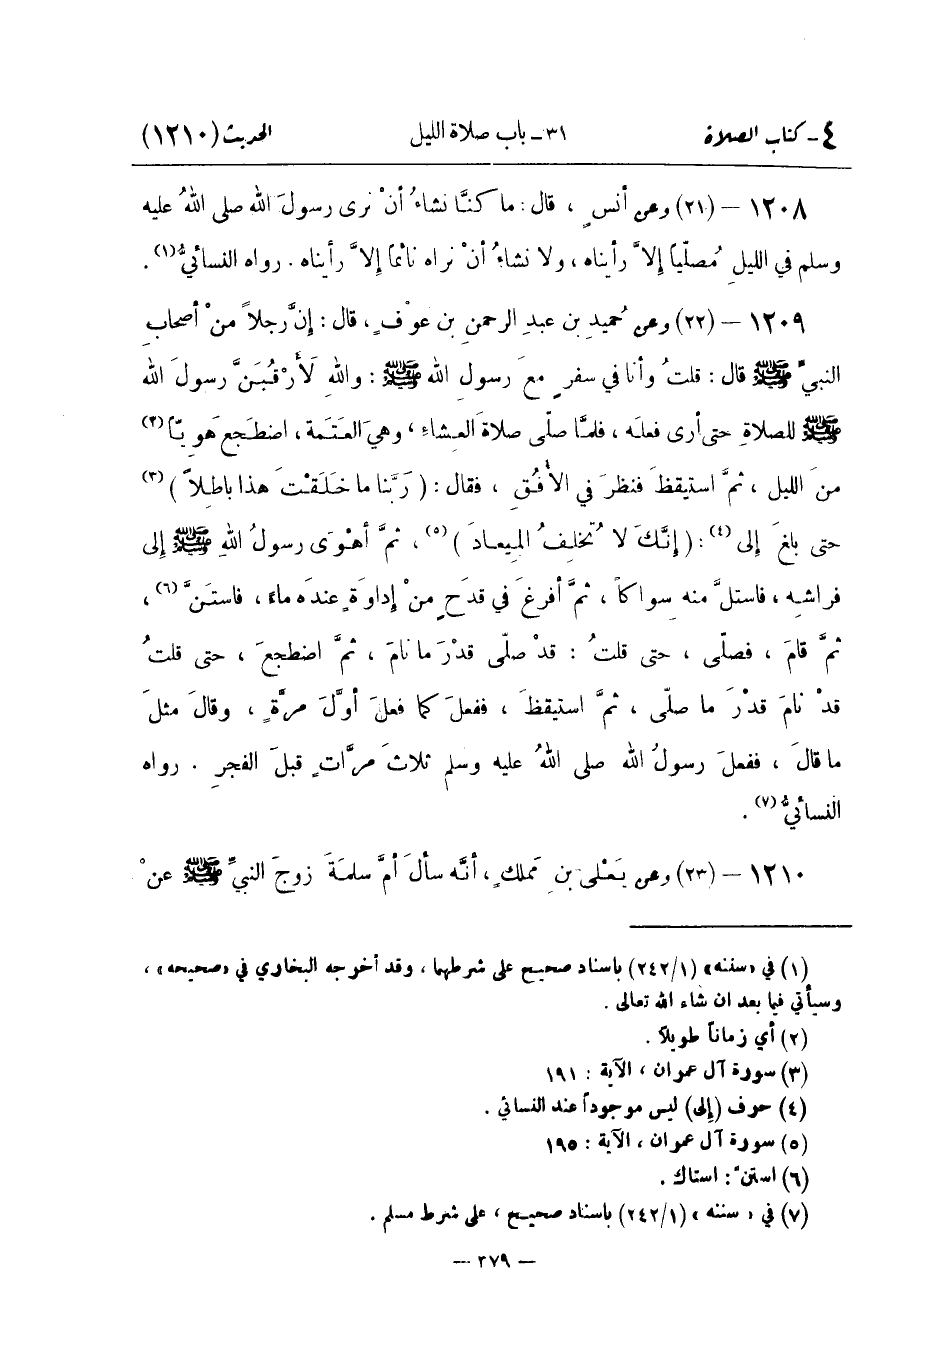 ٤ - كتاب الصلاة ٣١ - باب صلاة الليل الحديث (١٢١٠)
١٢٠٨ – (٢١) وعن أنسٍ ، قال : ما كنَّا نشاءُ أنْ نرى رسولَ الله صلى اللهُ عليه
وسلم في الليلِ مُصلّياً إلاَّ رأيناه ، ولا نشاءُ أنْ نراه نائماً إلاَّ رأيناه . رواه النسائيُّ(١) .
١٢٠٩ – (٢٢) وعن حُميدِ بن عبدِ الرحمنِ بنِ عوْفٍ ، قال : إنَّ رجلاً منْ أصحابِ
النبيِّ ﷺ قال : قلتُ وأنا في سفرٍ معَ رسولِ الله ﷺ : واللهِ لَأَرْقُبَنَّ رسولَ الله
ﷺ للصلاةِ حتى أرى فعلَه ، فلمَّا صلّى صلاةَ العشاءِ ، وهيَ العَتَمة ، اضطجعَ هَوِيّاً(٢)
منَ الليلِ ، ثمَّ استيقظَ فنظرَ في الأُفُقِ ، فقال : ( رَبَّنا ما خَلَقْتَ هذا باطِلاً )(٣)
حتى بلغَ إلى(٤) : ( إنَّكَ لا تُخلِفُ المِيعادَ )(٥) ، ثمَّ أهْوَى رسولُ اللهِ ﷺ إلى
فراشِه ، فاستلَّ منه سواكاً ، ثمَّ أفرغَ في قدَحٍ منْ إداوَةٍ عندَه ماءً ، فاستَنَّ(٦) ،
ثمَّ قامَ ، فصلّى ، حتى قلتُ : قدْ صلّى قدْرَ ما نامَ ، ثمَّ اضطجعَ ، حتى قلتُ
قدْ نامَ قدْرَ ما صلّى ، ثمَّ استيقظَ ، ففعلَ كما فعلَ أوَّلَ مرَّةٍ ، وقالَ مثلَ
ما قالَ ، ففعلَ رسولُ الله صلى اللهُ عليه وسلم ثلاثَ مرَّاتٍ قبلَ الفجرِ . رواه
النسائيُّ(٧) .
١٢١٠ – (٢٣) وعن يَعْلى بنِ مَملكٍ ، أنَّه سألَ أمَّ سلمةَ زوجَ النبيِّ ﷺ عنْ
(١) في «سننه» (٢٤٢/١) باسناد صحيح على شرطهما ، وقد أخرجه البخاري في «صحيحه» ،
وسيأتي فيما بعد ان شاء الله تعالى .
(٢) أي زماناً طويلاً .
(٣) سورة آل عمران ، الآية : ١٩١
(٤) حرف (إلى) ليس موجوداً عند النسائي .
(٥) سورة آل عمران ، الآية : ١٩٥
(٦) استنَّ : استاك .
(٧) في « سننه » (٢٤٢/١) باسناد صحيح ، على شرط مسلم .
— ٣٧٩ —